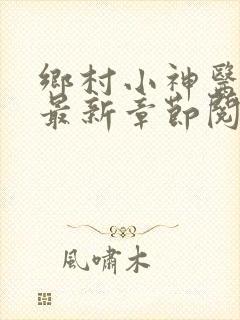 鄉村小神醫
最新章節閱
風嘯木